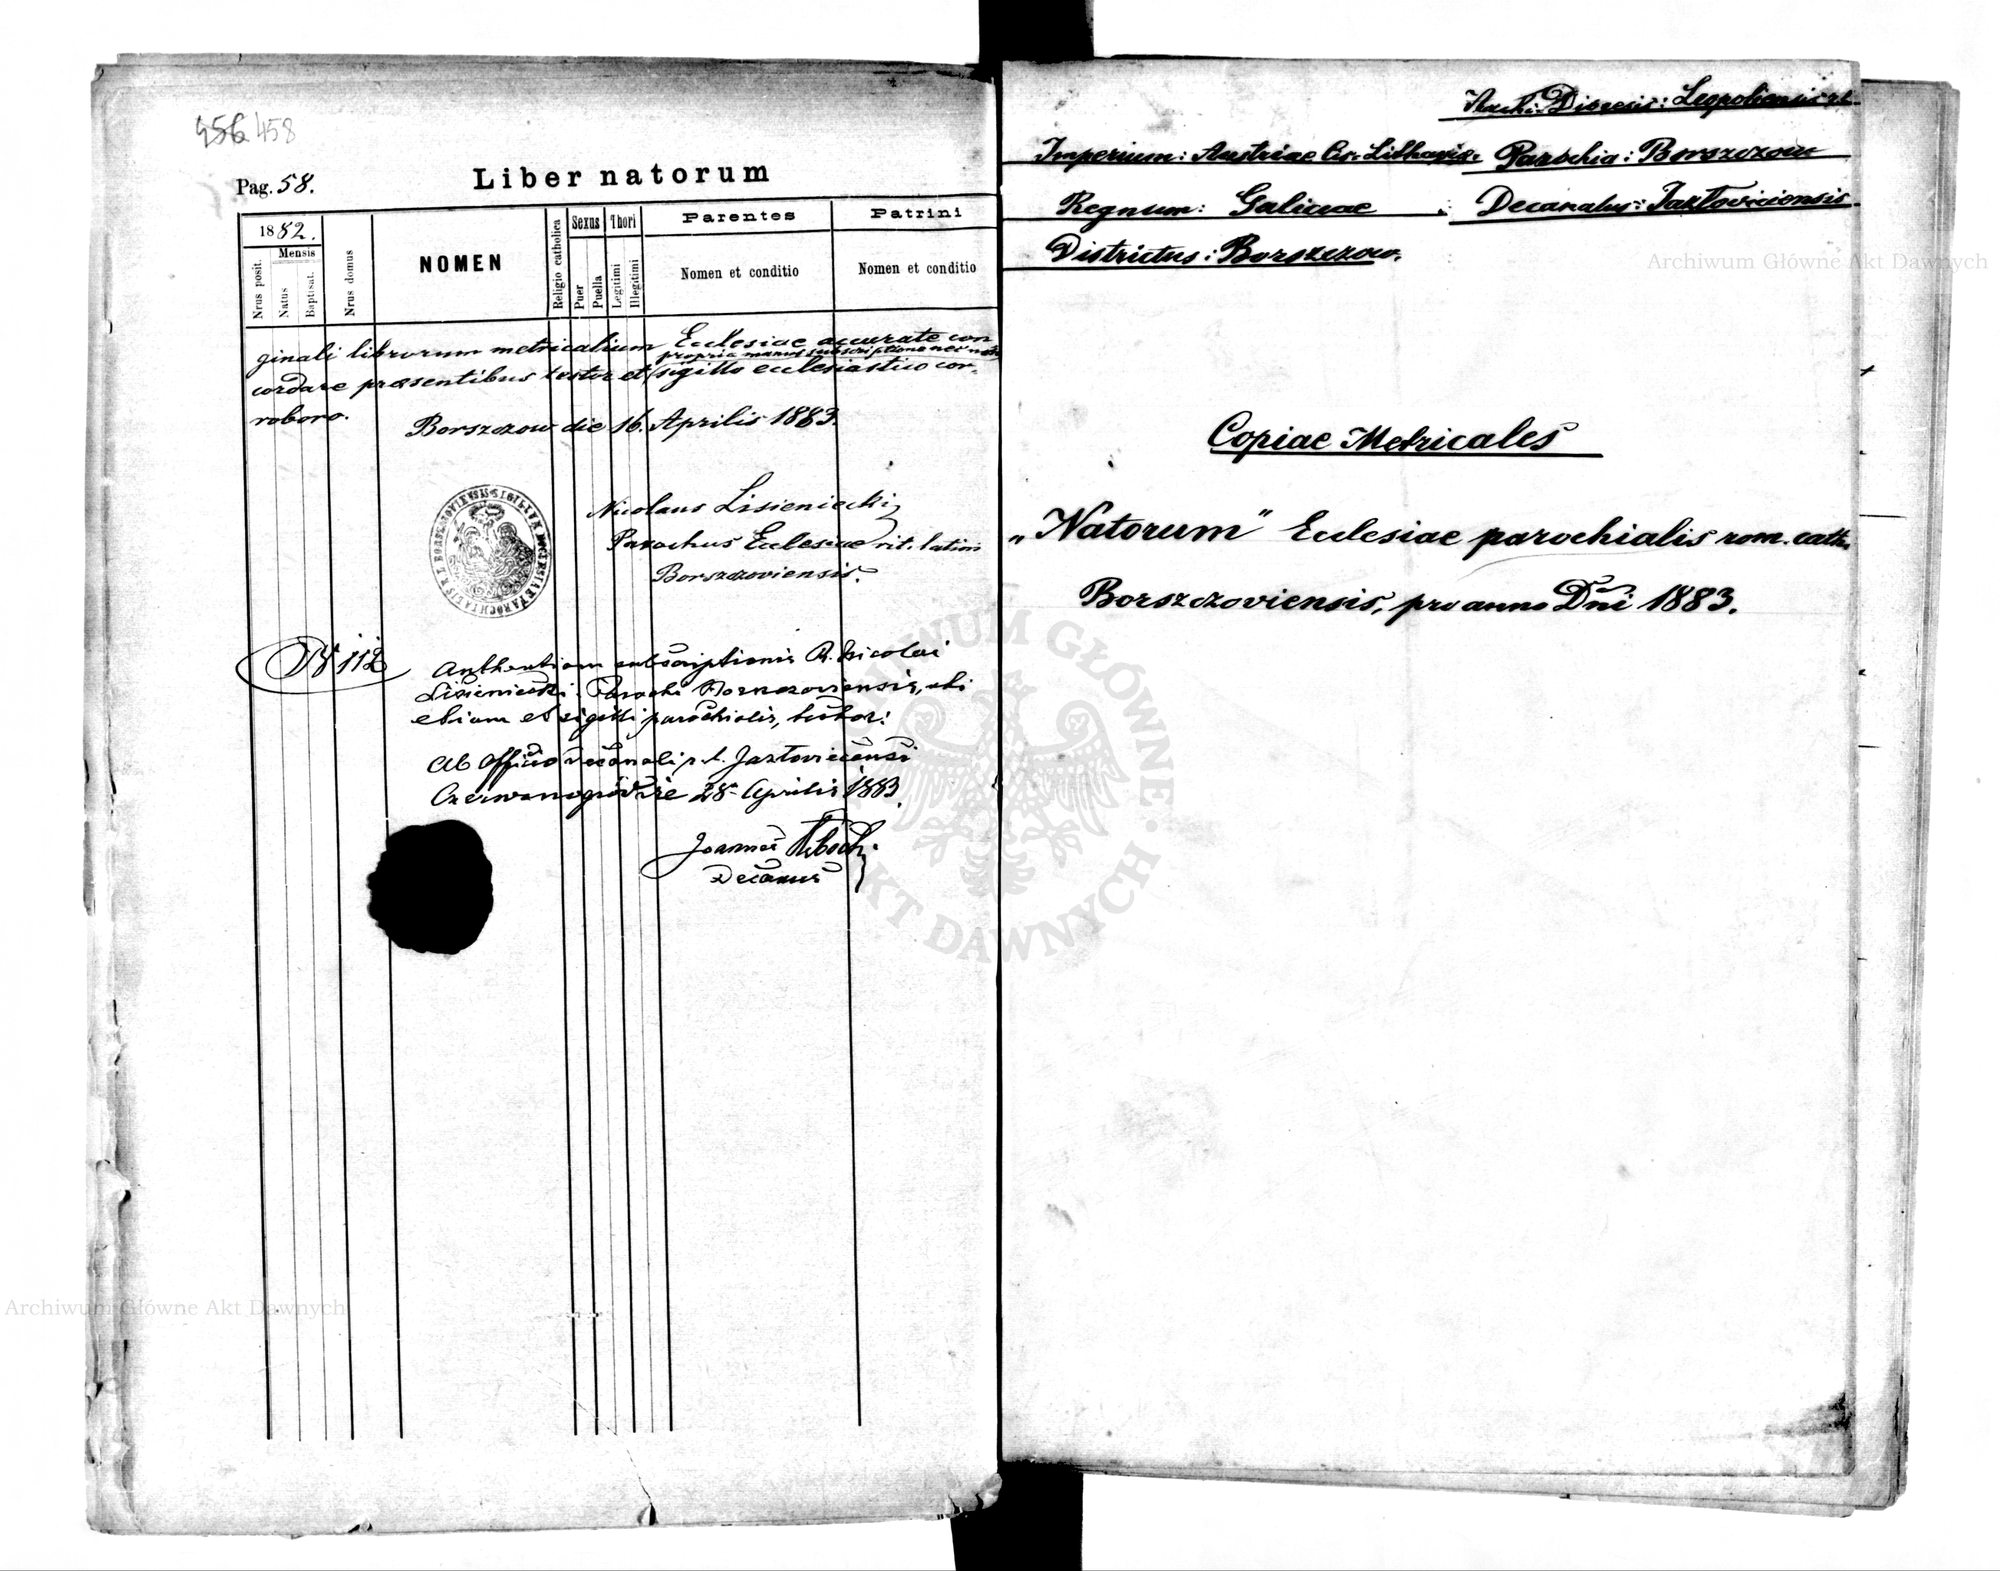 456 458
Pag. 58.
Liber natorum
1882.
Mensis
Nrus posit.
Natus
Baptisat.
Nrus domus
NOMEN
Religio catholica
Sexus
Puer
Puella
Thori
Legitimi
Illegitimi
Parentes
Nomen et conditio
Patrini
Nomen et conditio
ginali librorum metricalium Ecclesiae accurate con
propria manus subscriptione nec non
cordare praesentibus testor et sigillo ecclesiastico cor-
roboro.
Borszczow die 16. Aprilis 1883.
Nicolaus Lisieniecki
Parochus Ecclesiae rit. latini
Borszczoviensis.
N 112
Authentiam subscriptionis R. Nicolai
Lisieniecki Parochi Borszczoviensis, ubi
etiam et sigilli parochialis, testor.
Ab Officio Decanali r. l. Jazlovicensi
28 Aprilis 1883.
Joannes
Decanus
Archi-Dioecesis: Leopoliensis r. l.
Imperium: Austriae Cis-Lithavia. Parochia: Borszczow
Regnum: Galiciae Decanatus: Jazloviciensis
Districtus: Borszczow.
Copiae Metricales
„Natorum" Ecclesiae parochialis rom. cath.
Borszczoviensis, pro anno Dni 1883.
ARCHIWUM GŁÓWNE AKT DAWNYCH
Archiwum Główne Akt Dawnych
Archiwum Główne Akt Dawnych